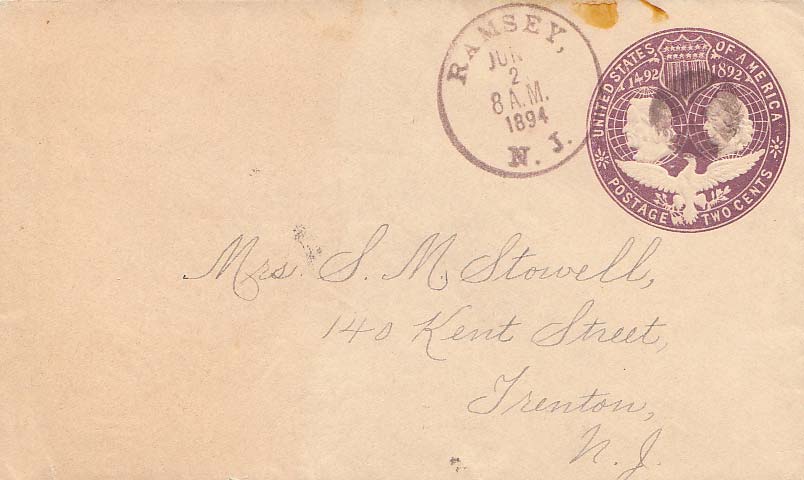 RAMSEY,
JUN
2
8 A.M.
1894
N. J.
UNITED STATES OF AMERICA
1492 1892
POSTAGE TWO CENTS
Mrs. S. M. Stowell,
140 Kent Street,
Trenton,
N. J.